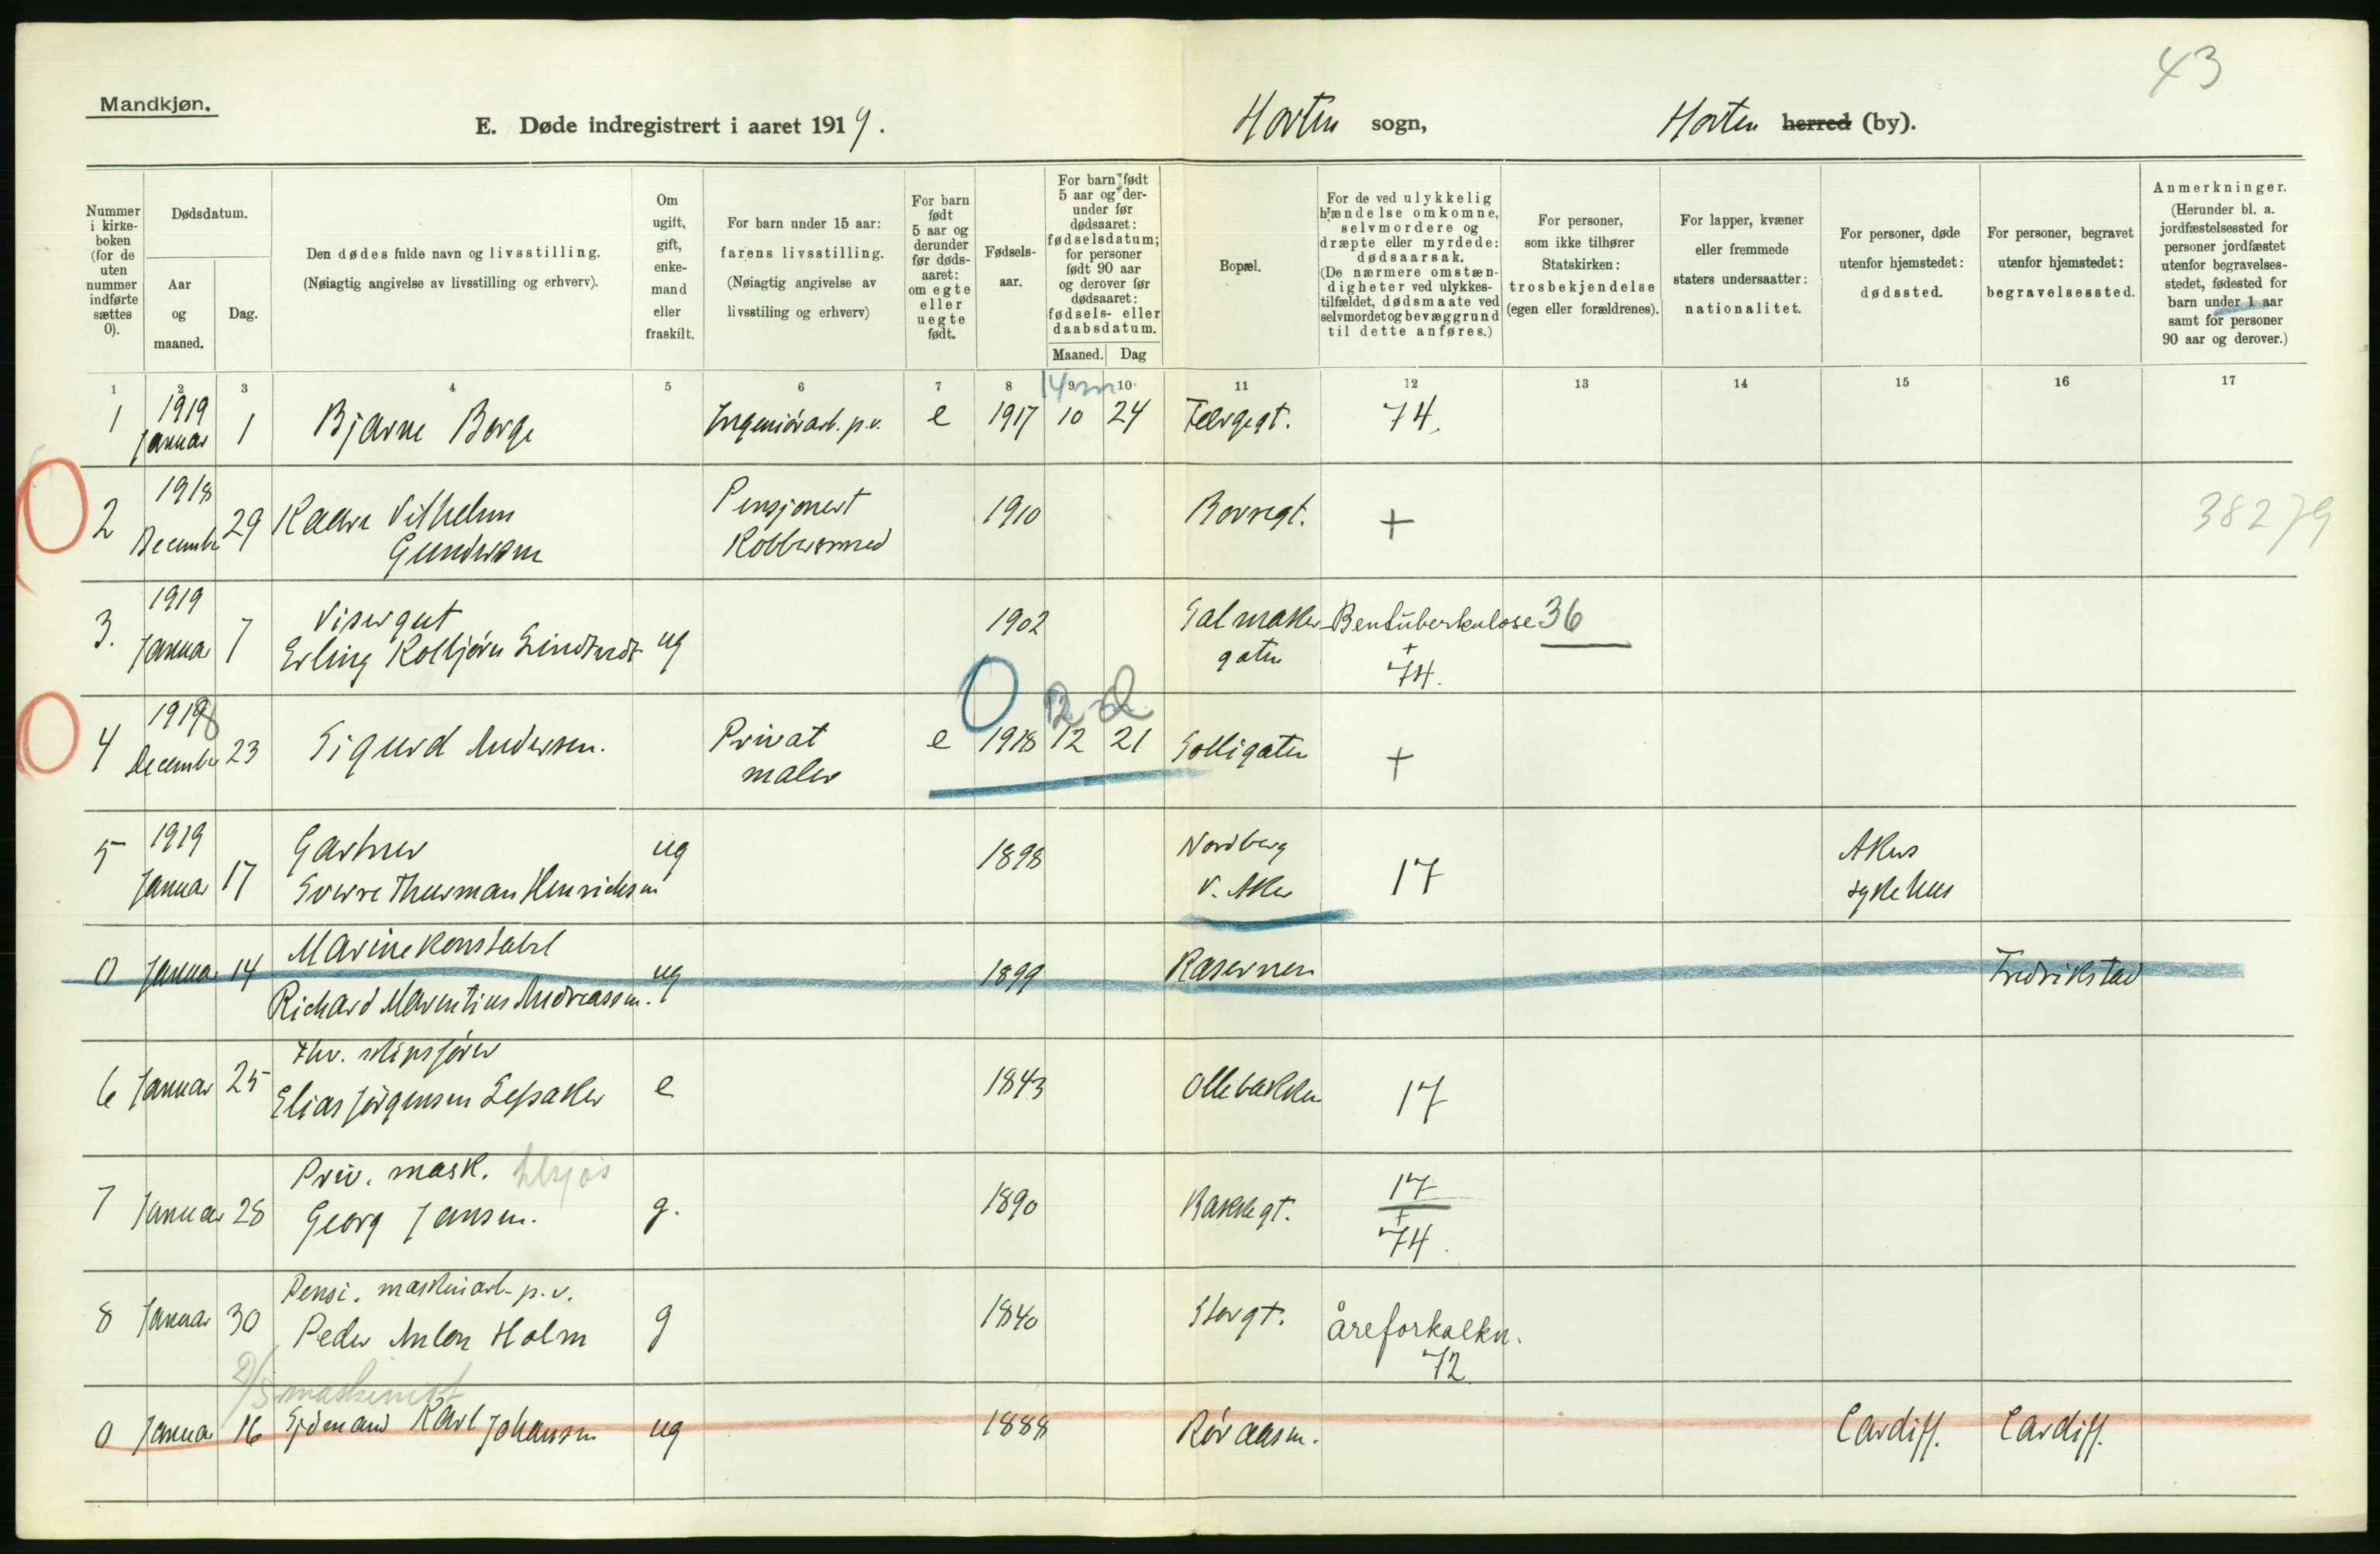 43
Mandkjøn.
E. Døde indregistrert i aaret 1919.
Horten sogn,
Horten herred (by).
Nummer i kirke-boken (for de uten nummer indførte sættes 0).
Dødsdatum.
Aar og maaned.
Dag.
Den dødes fulde navn og livsstilling.
(Nøiagtig angivelse av livsstilling og erhverv).
Om ugift, gift, enke-mand eller fraskilt.
For barn under 15 aar: farens livsstilling.
(Nøiagtig angivelse av livsstiling og erhverv)
For barn født 5 aar og derunder før døds-aaret: om egte eller uegte født.
Fødsels-aar.
For barn født 5 aar og der-under før dødsaaret: fødselsdatum; for personer født 90 aar og derover før dødsaaret: fødsels- eller daabsdatum.
Maaned. Dag
Bopæl.
For de ved ulykkelig hændelse omkomne, selvmordere og dræpte eller myrdede: dødsaarsak.
(De nærmere omstæn-digheter ved ulykkes-tilfældet, dødsmaate ved selvmordet og bevæggrund til dette anføres.)
For personer, som ikke tilhører Statskirken: trosbekjendelse (egen eller forældrenes).
For lapper, kvæner eller fremmede staters undersaatter: nationalitet.
For personer, døde utenfor hjemstedet: dødssted.
For personer, begravet utenfor hjemstedet: begravelsessted.
Anmerkninger.
(Herunder bl. a. jordfæstelsessted for personer jordfæstet utenfor begravelses-stedet, fødested for barn under 1 aar samt for personer 90 aar og derover.)
1 2 3 4 5 6 7 8 9 10 11 12 13 14 15 16 17
14 m
1 1919 Januar 1 Bjarne Borge Ingeniørarb. p.v. e 1917 10 24 74.
2 1918 December 29 Kaare Vilhelm Gundersen Pensjonert Kobbersmed 1910 Borregt. + 38279
3. 1919 Januar 7 Visergut
Erling Kolbjørn ug 1902 Salmakergaten Bentuberkulose 36
+
74.
0 2 d
4 1918 December 23 Sigurd Andersen. Privat maler e 1918 12 21 Solligaten +
5 1919 Januar 17 Gartner
Sverre Thurman Henriksen ug 1898 Nordberg V. Aker 17 Akers sykehus
0 Januar 14 Marinekonstabel
Richard Marentius Andreassen. ug 1899 Kasernen Fredrikstad
6 Januar 25 Fhv. skipsfører
Elias Jørgensen Lessaker e 1843 Ollebakken 17
7 Januar 28 Priv. mask. tilsjøs
Georg Jansen. g. 1890 Bakkegt. 17
+
74.
8 Januar 30 Pensj. maskinarb. p.v.
Peder Anton Holm g 1840 Storgt. åreforkalkn.
72
2/3 maskinist
0 Januar 16 Sjömand Karl Johansen ug 1888 Röraasen. Cardiff. Cardiff.